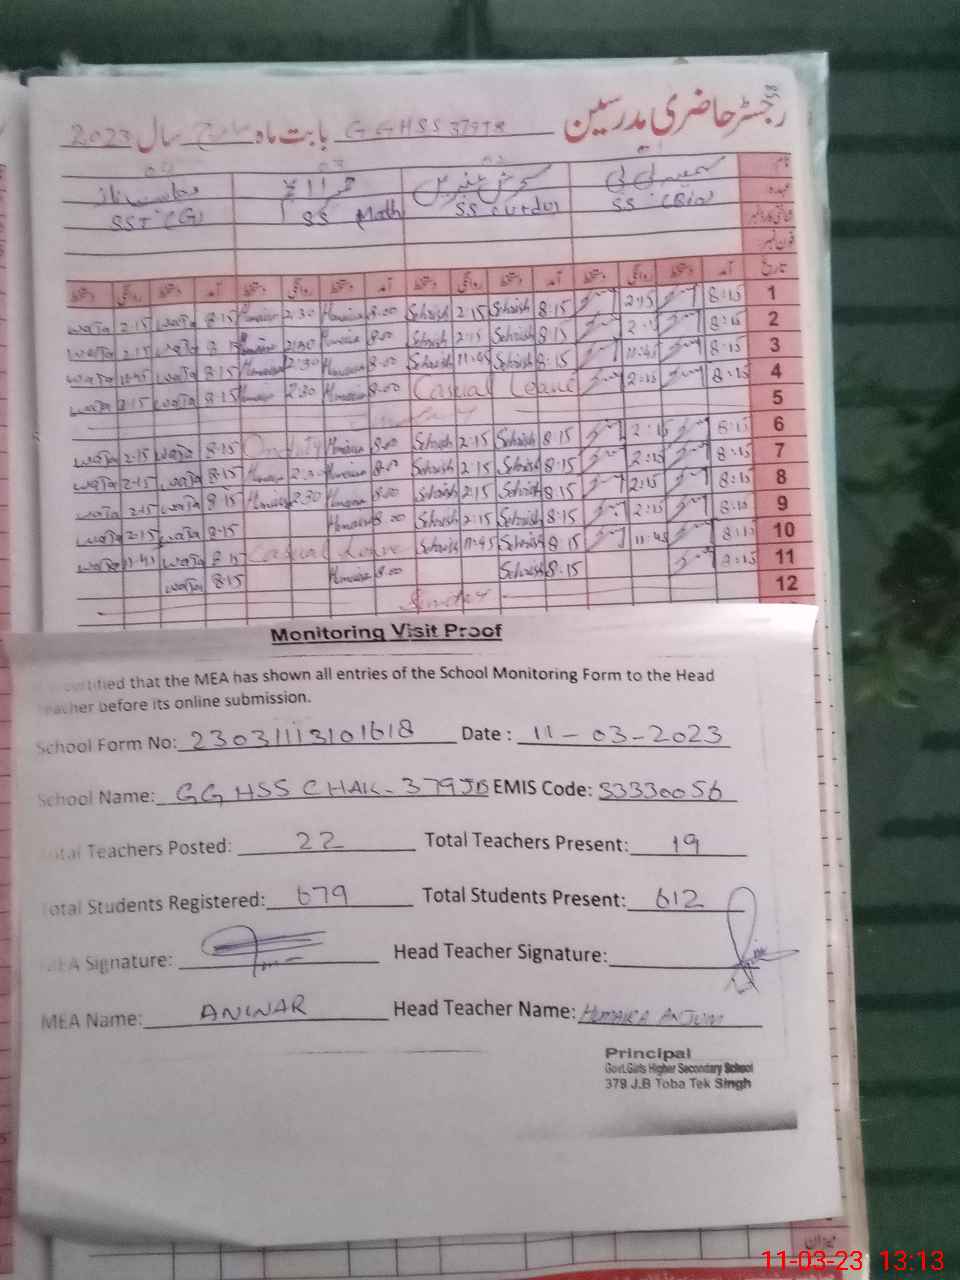 رجسٹر حاضری مدرسین GGHSS 379JB بابت ماہ مارچ سال 2023
SS (Bio) SS (Urdu) SS Math SST (G)
تاریخ آمد دستخط روانگی دستخط آمد دستخط روانگی دستخط آمد دستخط روانگی دستخط آمد دستخط روانگی دستخط
1 8:15 2:15 8:15 Sehrish 2:15 Sehrish 8:00 Humaira 2:30 Humaira 8:15 2:15
2 8:15 8:15 Sehrish 2:15 Sehrish 8:00 Humaira 2:30 Humaira 2:15
3 8:15 11:45 8:15 Sehrish 11:45 Sehrish 8:00 Humaira 2:30 Humaira 8:15 11:45
4 8:15 2:15 Casual Leave 8:00 Humaira 2:30 Humaira 8:15 2:15
5 Sunday
6 8:15 2:15 8:15 Sehrish 2:15 Sehrish 8:00 Humaira On duty 8:15 2:15
7 8:15 2:15 8:15 Sehrish 2:15 Sehrish 8:00 Humaira Humaira 8:15 2:15
8 8:15 2:15 8:15 Sehrish 2:15 Sehrish 8:00 Humaira 2:30 Humaira 8:15 2:15
9 8:15 2:15 8:15 Sehrish 2:15 Sehrish 8:00 Humaira 8:15 2:15
10 8:15 11:45 8:15 Sehrish 11:45 Sehrish Casual Leave 8:15 11:45
11 8:15 8:15 Sehrish 8:00 Humaira 8:15
12 Sunday
Monitoring Visit Proof
certified that the MEA has shown all entries of the School Monitoring Form to the Head
Teacher before its online submission.
School Form No: 23031113101618 Date : 11-03-2023
School Name: GGHSS CHAK-379JB EMIS Code: 53330056
Total Teachers Posted: 22 Total Teachers Present: 19
Total Students Registered: 679 Total Students Present: 612
MEA Signature: Head Teacher Signature:
MEA Name: ANWAR Head Teacher Name: HUMAIRA ANJUM
Principal
Govt.Girls Higher Secondary School
379 J.B Toba Tek Singh
میزان
11-03-23 13:13